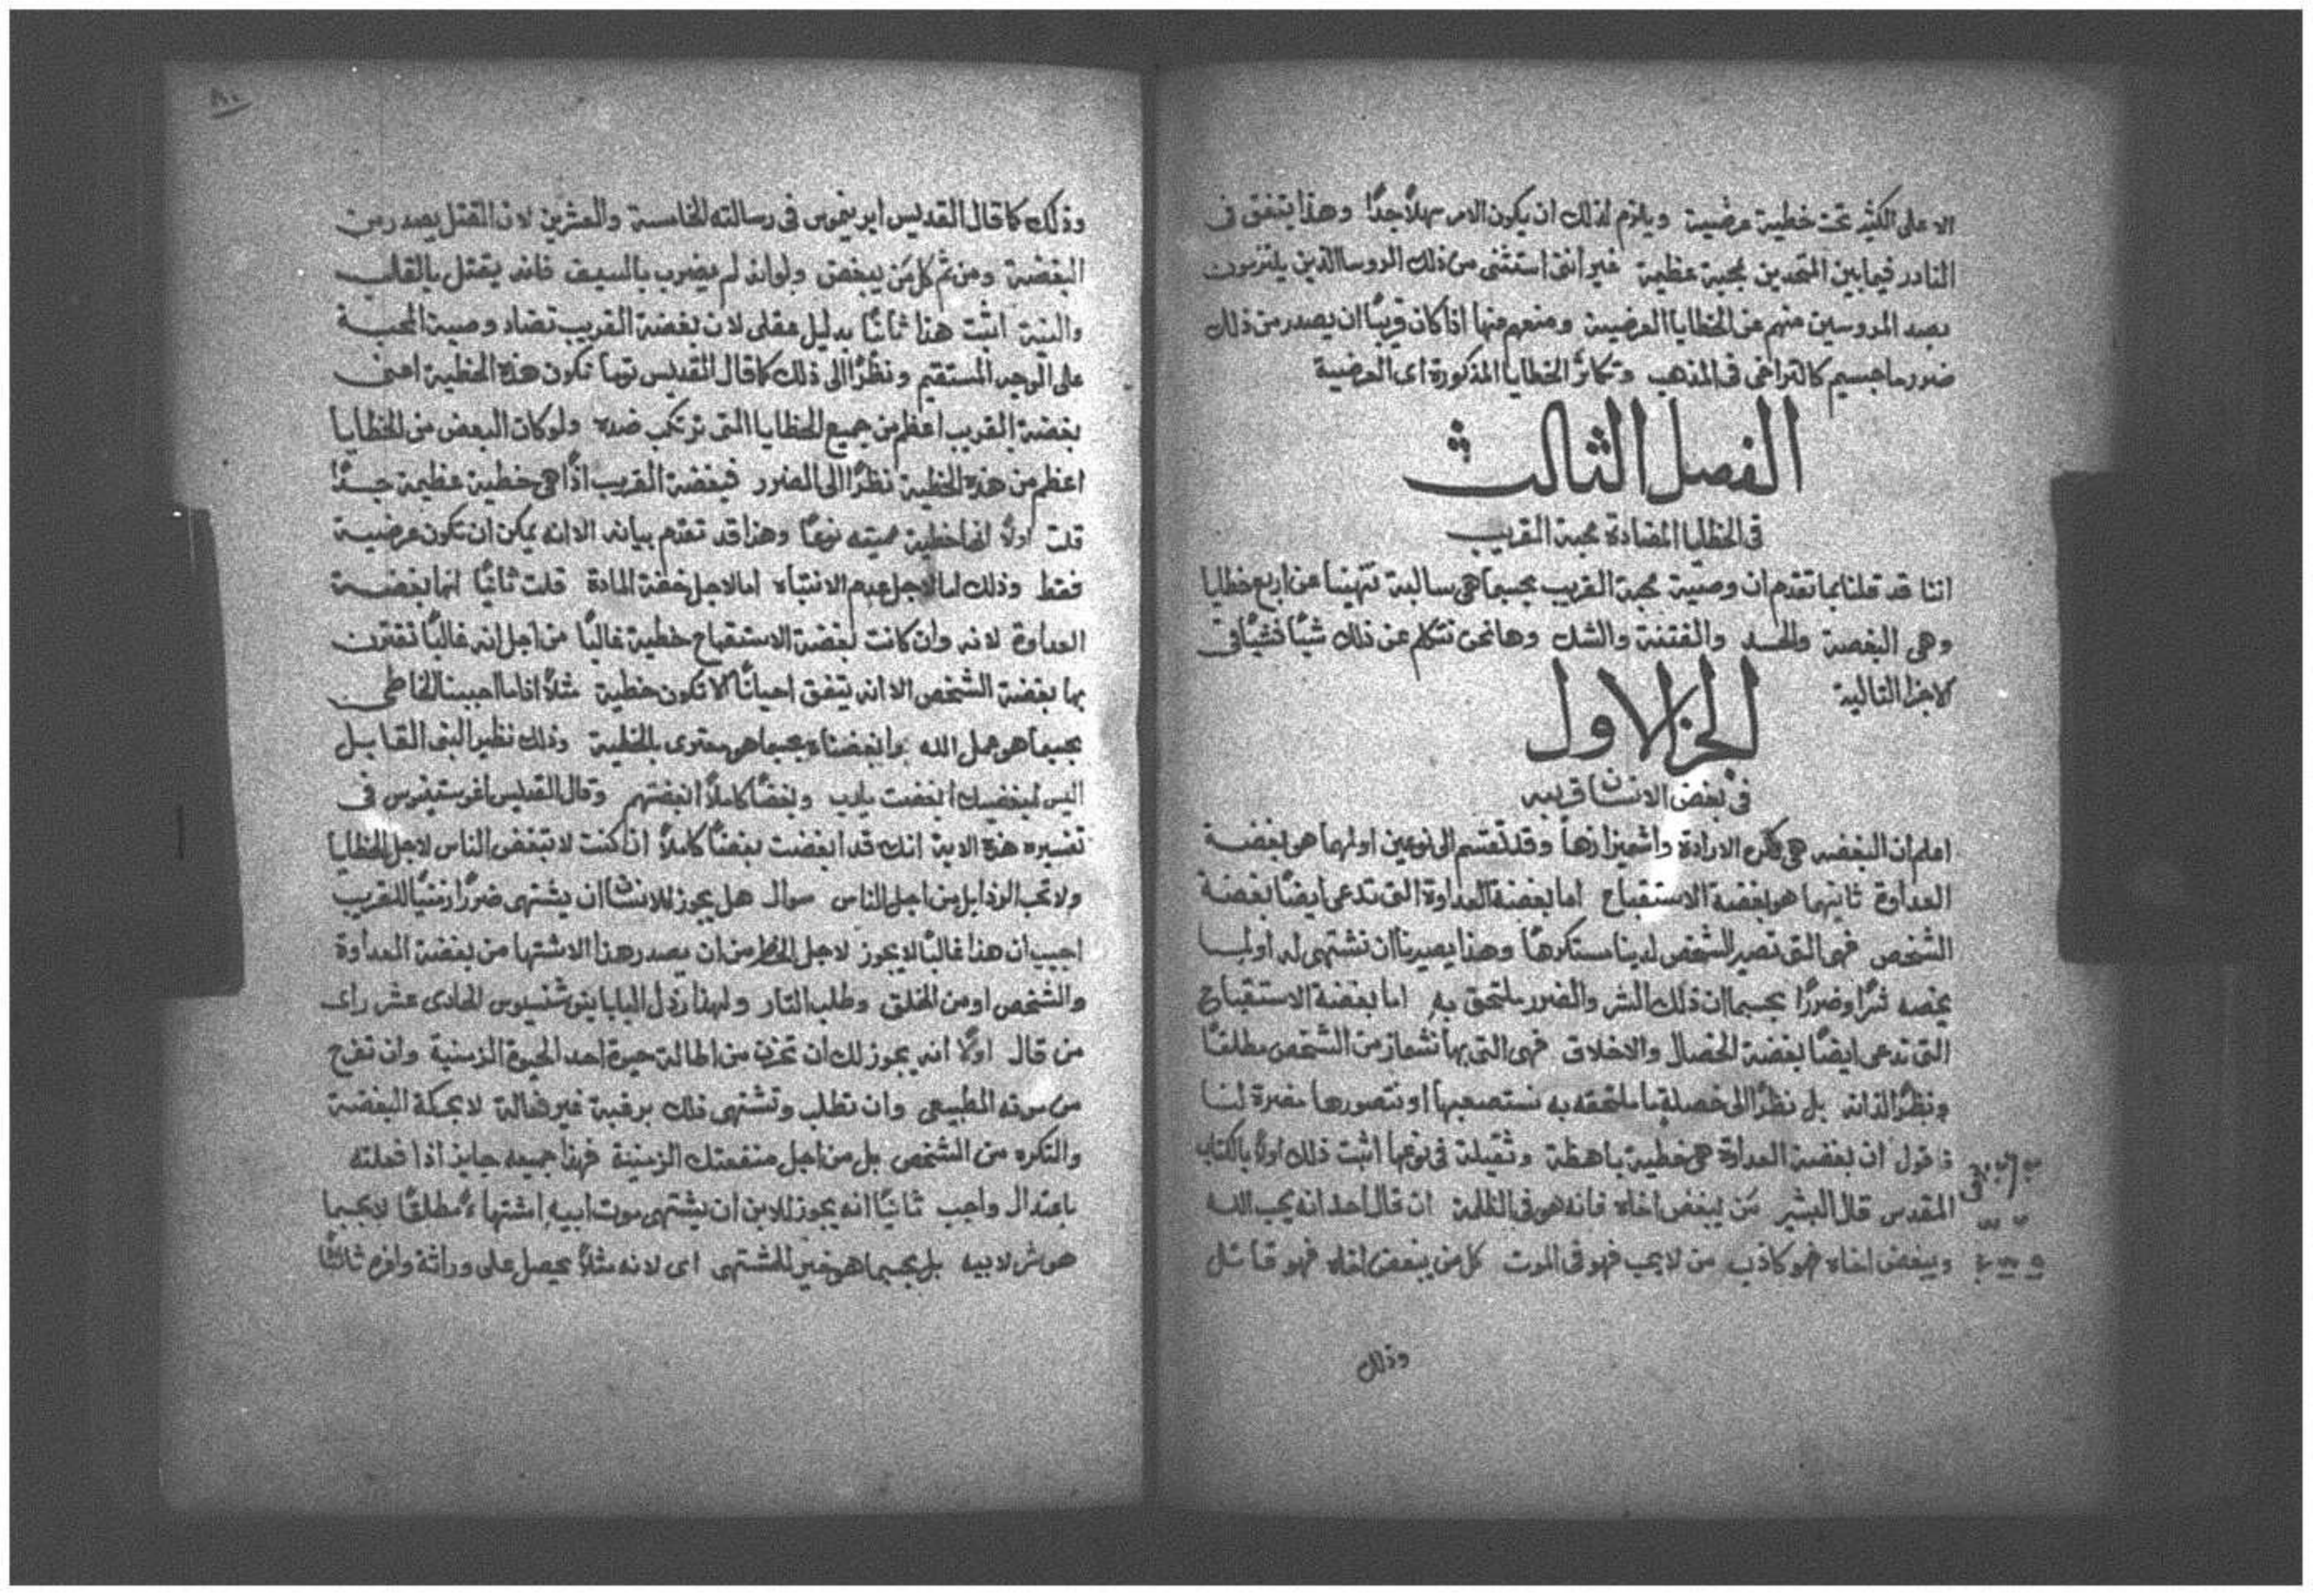 الا على الكثير تحت خطية عرضية ويلزم لذلك ان يكون الامر سهلاً جداً وهذا يتفق في
النادر فيما بين المتحدين بمحبة عظيمة غير انني استثنى من ذلك الروسا الذين يلتزمون
بصد المروسين منهم عن الخطايا العرضية ومنعهم منها اذا كان قريبًا ان يصدر من ذلك
ضرر ما جسيم كالتراخي في المذهب وتكاثر الخطايا المذكورة اى العرضية
الفصل الثالث
في الخطايا المضادة محبة القريب
اننا قد قلنا بما تقدم ان وصية محبة القريب بحسبما هي سالبة تنهينا عن اربع خطايا
وهي البغضة والحسد والفتنة والشك وها نحن نتكلم عن ذلك شيًا فشيًا في
الاجزا التالية
الجزء الاول
في بغض الانسان قريبه
اعلم ان البغضه هي تكره الارادة واشميزازها وقد تقسم الى نوعين اولهما هي بغضة
العداوة ثانيهما هو بغضة الاستقباح اما بغضة العداوة التي تدعى ايضًا بغضة
الشخص فهي التي تصير الشخص لدينا مستكرهًا وهذا يصيرنا ان نشتهى له اولما
يخصه شرًا وضررًا بحسبما ان ذلك الشر والضرر ملتحق به اما بغضة الاستقباح
التي تدعى ايضًا بغضة الخصال والاخلاق فهي التي بها نشماز من الشخص مطلقًا
ونظرًا لذاته بل نظرًا الى خصلة ما ملتحقه به نستصعبها او نتصورها مضرة لنا
فاقول ان بغضة العداوة هي خطية باهظة وثقيلة في نوعها اثبت ذلك اولاً بالكتاب
المقدس قال البشير مَن يبغض اخاه فانه هو في الظلمة ان قال احد انه يحب الله
ويبغض اخاه فهو كاذب من لا يحب فهو في الموت كل من يبغض اخاه فهو قاتل
وذلك
وذلك كما قال القديس ايرونيموس في رسالته الخامسة والعشرين لان القتل يصدر من
البغضة ومن ثم كل مَن يبغض ولو انه لم يضرب بالسيف فانه يقتل بالقلب
والنية اثبت هذا ثانيًا بدليل عقلي لان بغضة القريب تضاد وصية المحبة
على الوجه المستقيم ونظرًا الى ذلك كما قال القديس توما تكون هذه الخطية اعنى
بغضة القريب اعظم من جميع الخطايا التي ترتكب ضده ولو كان البعض من الخطايا
اعظم من هذه الخطية نظرًا الى الضرر فبغضة القريب اذًا هي خطية عظيمة جدًا
قلت اولاً انها خطية مميته نوعًا وهذا قد تقدم بيانه الا انه يمكن ان تكون عرضية
فقط وذلك اما لاجل عدم الانتباه اما لاجل خفة المادة قلت ثانيًا انها بغضة
العداوة لانه وان كانت بغضة الاستقباح خطية غالبًا من اجل انه غالبًا تقترن
بها بغضة الشخص الا انه يتفق احيانًا الا تكون خطية مثلاً اذا ما احببنا الخاطى
بحسبما هو عمل الله وابغضناه بحسبما هو محتوى بالخطية وذلك نظير النبى القايل
اليس لمبغضيك ابغضت يا رب وبغضًا كاملاً ابغضتهم وقال القديس اغوستينوس في
تفسيره هذه الاية انك قد ابغضت بغضًا كاملاً ان كنت لا تبغض الناس لاجل الخطايا
ولا تحب الرذايل من اجل الناس سوال هل يجوز للانسان ان يشتهى ضررًا زمنيًا للقريب
اجيب ان هذا غالبًا لا يجوز لاجل الخطر من ان يصدر هذا الاشتها من بغضة العداوة
والشخص او من القلق وطلب الثار ولهذا رذل البابا اينوشنسيوس الحادى عشر راى
من قال اولاً انه يجوز لك ان تحزن من اطالة حيوة احد الحيوة الزمنية وان تفرح
من موته الطبيعى وان تطلب وتشتهى ذلك برغبة غير فعالة لا بحكة البغضة
والتكره من الشخص بل من اجل منفعتك الزمنية فهذا جميعه جايز اذا فعلته
باعتدال واجب ثانيًا انه يجوز للابن ان يشتهى موت ابيه اشتهاءً مطلقًا لا بحسبما
هو شر لابيه بل بحسبما هو خير للمشتهى اى لانه مثلاً يحصل على وراثة وافره ثالثًا